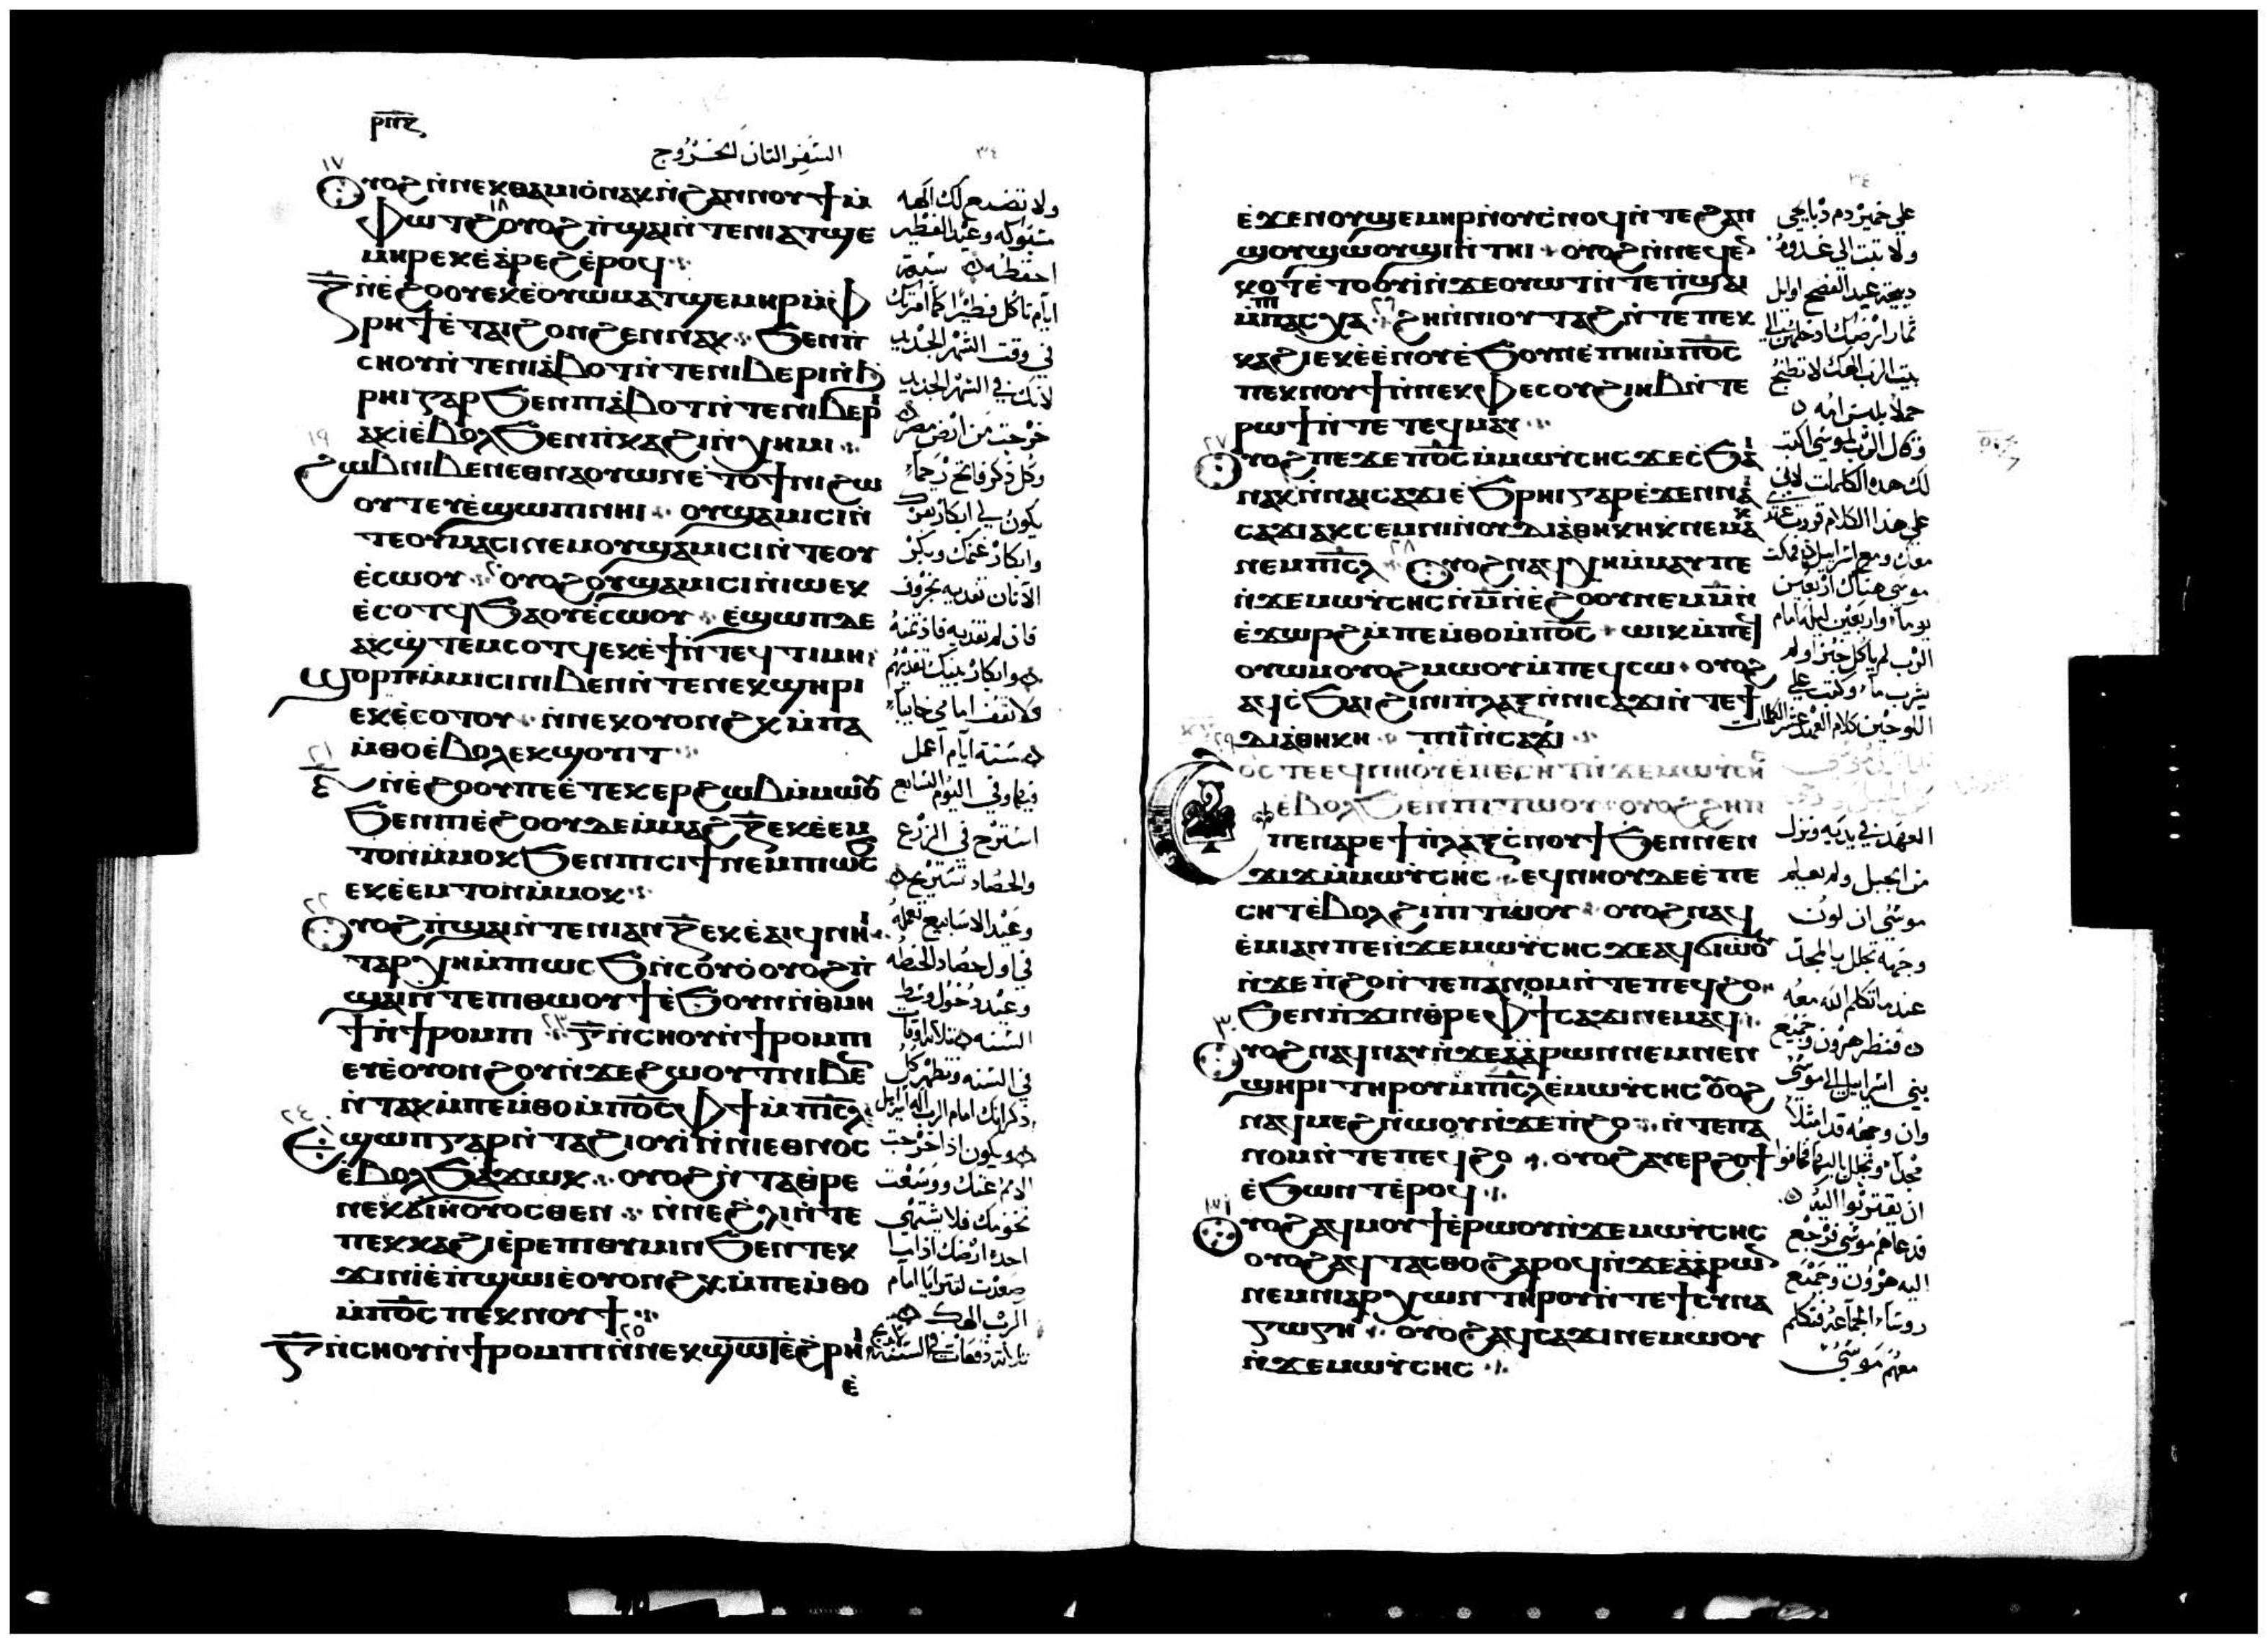 ⲣⲡⲍ
السفر الثاني الخروج
ⲟⲩⲟϩ ⲛ̀ⲛⲉⲕⲑⲁⲙⲓⲟ̀ ⲛⲁⲕ ⲛ̀ϩⲁⲛⲛⲟⲩϯ ⲙ̀
ⲫⲱⲧϩ ⲟⲩⲟϩ ⲡ̀ϣⲁⲓ ⲛ̀ⲧⲉ ⲛⲓⲁⲧϣⲉ
ⲙⲏⲣ ⲉⲕⲉ̀ⲁ̀ⲣⲉϩ ⲉ̀ⲣⲟϥ
ⲍ̅ ⲛ̀ⲉ̀ϩⲟⲟⲩ ⲉⲕⲉ̀ⲟⲩⲱⲙ ⲁⲧϣⲉⲙⲏⲣ ⲙ̀ⲫ̀
ⲣⲏϯ ⲉ̀ⲧⲁⲓϩⲟⲛϩⲉⲛ ⲛⲁⲕ ϧⲉⲛ ⲡ̀
ⲥⲏⲟⲩ ⲛ̀ⲧⲉ ⲡⲓⲁ̀ⲃⲟⲧ ⲛ̀ⲧⲉ ⲛⲓⲃⲉⲣⲓ ⲛ̀ϧ̀
ⲣⲏⲓ ⲅⲁⲣ ϧⲉⲛ ⲡⲓⲁ̀ⲃⲟⲧ ⲛ̀ⲧⲉ ⲛⲓⲃⲉⲣⲓ
ⲁⲕⲓ̀ ⲉ̀ⲃⲟⲗ ϧⲉⲛ ⲡ̀ⲕⲁϩⲓ ⲛ̀ⲭⲏⲙⲓ
ϩⲱⲃ ⲛⲓⲃⲉⲛ ⲉⲑⲛⲁⲟⲩⲱⲛ ⲉ̀ⲧⲟϯ ⲛⲓϩⲱ
ⲟⲩⲧ ⲉⲩⲉ̀ϣⲱⲡⲓ ⲛⲏⲓ ⲟⲩϣⲁⲙⲓⲥⲓ ⲛ̀
ⲧⲉ ⲟⲩⲙⲁⲥⲓ ⲛⲉⲙ ⲟⲩϣⲁⲙⲓⲥⲓ ⲛ̀ⲧⲉ ⲟⲩ
ⲉ̀ⲥⲱⲟⲩ ⲟⲩⲟϩ ⲟⲩϣⲁⲙⲓⲥⲓ ⲛ̀ⲓⲱ ⲉⲕ
ⲉ̀ⲥⲟⲧϥ ϧⲁ ⲟⲩⲉ̀ⲥⲱⲟⲩ ⲉ̀ϣⲱⲡ ⲇⲉ
ⲁⲕϣ̀ⲧⲉⲙⲥⲟⲧϥ ⲉⲕⲉ̀ϯ ⲛ̀ⲧⲉϥⲧⲓⲙⲏ
ϣⲟⲣⲡ ⲙ̀ⲙⲓⲥⲓ ⲛⲓⲃⲉⲛ ⲛ̀ⲧⲉ ⲛⲉⲕϣⲏⲣⲓ
ⲉⲕⲉ̀ⲥⲟⲧⲟⲩ ⲛ̀ⲛⲉⲕⲟⲩⲟⲛϩⲕ ⲙ̀ⲡⲁ
ⲙ̀ⲑⲟ ⲉ̀ⲃⲟⲗ ⲉⲕϣⲟⲩⲓⲧ
ⲋ̅ ⲛ̀ⲉ̀ϩⲟⲟⲩ ⲡⲉ ⲉ̀ⲧⲉⲕⲉⲣϩⲱⲃ ⲙ̀ⲙⲱⲟⲩ
ϧⲉⲛ ⲡⲓⲉ̀ϩⲟⲟⲩ ⲇⲉ ⲙ̀ⲙⲁϩⲍ̅ ⲉⲕⲉ̀ⲉⲙ
ⲧⲟⲛ ⲙ̀ⲙⲟⲕ ϧⲉⲛ ⲡⲓⲥⲓϯ ⲛⲉⲙ ⲡⲓⲱⲥϧ
ⲉⲕⲉ̀ⲉⲙⲧⲟⲛ ⲙ̀ⲙⲟⲕ
ⲟⲩⲟϩ ⲡ̀ϣⲁⲓ ⲛ̀ⲧⲉ ⲛⲓⲁⲛⲍ̅ ⲉⲕⲉ̀ⲁⲓϥ ⲛⲏⲓ
ⲧⲁⲣⲭⲏ ⲙ̀ⲡⲱⲥϧ ⲛ̀ⲥⲟⲩⲟ̀ ⲟⲩⲟϩ ⲡ̀
ϣⲁⲓ ⲛ̀ⲧⲉ ⲡⲓⲑⲱⲟⲩϯ ⲉ̀ϧⲟⲩⲛ ⲛ̀ⲑⲙⲏ
ϯ ⲛ̀ϯⲣⲟⲙⲡⲓ ⲅ̅ ⲛ̀ⲥⲏⲟⲩ ⲛ̀ϯⲣⲟⲙⲡⲓ
ⲉⲩⲉ̀ⲟⲩⲟⲛϩⲟⲩ ⲛ̀ϫⲉ ϩⲱⲟⲩⲧ ⲛⲓⲃⲉⲛ
ⲛ̀ⲧⲁⲕ ⲙ̀ⲡⲉⲙ̀ⲑⲟ ⲙ̀ⲡⲟ̅ⲥ̅ ⲫϯ ⲙ̀ⲡⲓ̅ⲥ̅ⲗ̅
ⲉϣⲱⲡ ⲅⲁⲣ ⲛ̀ⲧⲁϩⲓⲟⲩⲓ̀ ⲛ̀ⲛⲓⲉⲑⲛⲟⲥ
ⲉ̀ⲃⲟⲗ ϧⲁϫⲱⲕ ⲟⲩⲟϩ ⲛ̀ⲧⲁⲑⲣⲉ
ⲛⲉⲕϭⲓⲏ ⲟⲩⲟⲥⲑⲉⲛ ⲛ̀ⲛⲉϩⲗⲓ ⲛ̀ⲧⲉ
ⲡⲉⲕⲕⲁϩⲓ ⲉ̀ⲣⲉⲡⲓⲑⲩⲙⲓⲛ ϧⲉⲛ ⲡⲉⲕ
ϫⲓⲛⲓ̀ ⲉ̀ⲡ̀ϣⲱⲓ ⲉ̀ⲟⲩⲟⲛϩⲕ ⲙ̀ⲡⲉⲙ̀ⲑⲟ
ⲙ̀ⲡⲟ̅ⲥ̅ ⲡⲉⲕⲛⲟⲩϯ
ⲅ̅ ⲛ̀ⲥⲏⲟⲩ ⲛ̀ϯⲣⲟⲙⲡⲓ ⲛ̀ⲛⲉⲕϣⲱⲧ ⲉ̀ϩⲣⲏⲓ
ⲉ̀
ولا تصنع لك الهه
مسبوكه وعيد الفطير
احفظه سبعة
ايام تاكل فطيرا كما امرتك
في وقت الشهر الجديد
لانك في الشهر الجديد
خرجت من ارض مصر
وكل ذكر فاتح رحما
يكون لي ابكار بقرك
وابكار غنمك وبكر
الاتان تفديه بخروف
فان لم تفديه فاد ثمنه
وابكار بنيك تفديهم
فلا تقف امامي خايبا
ستة ايام اعمل
فيها وفي اليوم السابع
استرح في الزرع
والحصاد تستريح
وعيد الاسابيع تعمله
في اول حصاد الحنطه
وعيد دخول وسط
السنه ثلاثة اوقات
في السنه ويظهر كل
ذكرانك امام الرب اله اسراييل
ويكون اذا اخرجت
الامم عنك ووسعت
تخومك فلا يشتهي
احد ارضك اذا ما
صعدت لتترايا امام
الرب الهك
ثلاثة دفعات في السنه
ⲉ̀ϫⲉⲛ ⲟⲩϣⲉⲙⲏⲣ ⲛ̀ⲟⲩⲥ̀ⲛⲟϥ ⲛ̀ⲧⲉ ϩⲁⲛ
ϣⲟⲩϣⲱⲟⲩϣⲓ ⲛ̀ⲧⲏⲓ ⲟⲩⲟϩ ⲛ̀ⲛⲉϥⲉⲛ
ⲕⲟⲧ ⲉ̀ⲧⲟⲟⲩⲓ̀ ⲛ̀ϫⲉ ⲟⲩⲱⲧ ⲛ̀ⲧⲉ ⲡ̀ϣⲁⲓ
ⲙ̀ⲡⲁⲥⲭⲁ ϩⲏⲡⲡⲓ ⲟⲩⲧⲁϩ ⲛ̀ⲧⲉ ⲡⲉⲕ
ⲕⲁϩⲓ ⲉⲕⲉ̀ⲉ̀ⲛⲟⲩ ⲉ̀ϧⲟⲩⲛ ⲉ̀ⲡⲏⲓ ⲙ̀ⲡⲟ̅ⲥ̅
ⲡⲉⲕⲛⲟⲩϯ ⲛ̀ⲛⲉⲕⲫⲉⲥ ⲟⲩϩⲓⲏⲃ ⲛ̀ⲧⲉ
ⲣⲱϯ ⲛ̀ⲧⲉ ⲧⲉϥⲙⲁⲩ
ⲟⲩⲟϩ ⲡⲉϫⲉ ⲡⲟ̅ⲥ̅ ⲙ̀ⲙⲱⲩ̀ⲥⲏⲥ ϫⲉ ⲥ̀ϧⲁⲓ
ⲛⲁⲕ ⲛ̀ⲛⲁⲓⲥⲁϫⲓ ⲉ̀ϧⲣⲏⲓ ⲅⲁⲣ ⲉ̀ϫⲉⲛ ⲛⲁⲓ
ⲥⲁϫⲓ ⲁⲕⲥⲉⲙⲛⲓ ⲛ̀ⲟⲩⲇⲓⲁⲑⲏⲕⲏ ⲛⲉⲙⲁⲕ
ⲛⲉⲙ ⲡⲓ̅ⲥ̅ⲗ̅ ⲟⲩⲟϩ ⲛⲁϥⲭⲏ ⲙ̀ⲙⲁⲩ ⲡⲉ
ⲛ̀ϫⲉ ⲙⲱⲩ̀ⲥⲏⲥ ⲙ̅ ⲛ̀ⲉ̀ϩⲟⲟⲩ ⲛⲉⲙ ⲙ̅ ⲛ̀
ⲉ̀ϫⲱⲣϩ ⲙ̀ⲡⲉⲙ̀ⲑⲟ ⲙ̀ⲡⲟ̅ⲥ̅ ⲱⲓⲕ ⲙ̀ⲡⲉϥ
ⲟⲩⲱⲙ ⲟⲩⲟϩ ⲙⲱⲟⲩ ⲙ̀ⲡⲉϥⲥⲱ ⲟⲩⲟϩ
ⲁϥⲥ̀ϧⲁⲓ ϩⲓ ⲛⲓⲡ̀ⲗⲁⲝ ⲛ̀ⲛⲓⲥⲁϫⲓ ⲛ̀ⲧⲉ ϯ
ⲇⲓⲁⲑⲏⲕⲏ ⲡⲓⲓ̅ ⲛ̀ⲥⲁϫⲓ
ⲟⲥ ⲧⲉ ⲉϥⲛⲏⲟⲩ ⲉ̀ⲡⲉⲥⲏⲧ ⲛ̀ϫⲉ ⲙⲱⲩ̀ⲥⲏⲥ
ⲉ̀ⲃⲟⲗ ϧⲉⲛ ⲡⲓⲧⲱⲟⲩ ⲟⲩⲟϩ ϩⲏⲡ
ⲡⲉ ⲛⲁⲣⲉ ϯⲡ̀ⲗⲁⲝ ⲥ̀ⲛⲟⲩϯ ϧⲉⲛ ⲛⲉⲛ
ϫⲓϫ ⲙ̀ⲙⲱⲩ̀ⲥⲏⲥ ⲉϥⲛⲏⲟⲩ ⲇⲉ ⲉ̀ⲡⲉ
ⲥⲏⲧ ⲉ̀ⲃⲟⲗ ϩⲓ ⲡⲓⲧⲱⲟⲩ ⲟⲩⲟϩ ⲛⲁϥ
ⲉ̀ⲙⲓ ⲁⲛ ⲡⲉ ⲛ̀ϫⲉ ⲙⲱⲩ̀ⲥⲏⲥ ϫⲉ ⲁϥϭⲓⲱⲟⲩ
ⲛ̀ϫⲉ ⲡ̀ϩⲟ ⲛ̀ⲧⲉ ⲡⲁⲛⲟⲙ ⲛ̀ⲧⲉ ⲡⲉϥϩⲟ
ϧⲉⲛ ⲡ̀ϫⲓⲛⲑⲣⲉ ⲫϯ ⲥⲁϫⲓ ⲛⲉⲙⲁϥ
ⲟⲩⲟϩ ⲛⲁϥⲛⲁⲩ ⲛ̀ϫⲉ ⲁ̀ⲁ̀ⲣⲱⲛ ⲛⲉⲙ ⲛⲉⲛ
ϣⲏⲣⲓ ⲧⲏⲣⲟⲩ ⲙ̀ⲡⲓ̅ⲥ̅ⲗ̅ ⲉ̀ⲙⲱⲩ̀ⲥⲏⲥ ⲟⲩⲟϩ
ⲛⲁϥⲙⲉϩ ⲛ̀ⲱⲟⲩ ⲛ̀ϫⲉ ⲡ̀ϩⲟ ⲛ̀ⲧⲉ ⲡⲁ
ⲛⲟⲙ ⲛ̀ⲧⲉ ⲡⲉϥϩⲟ ⲟⲩⲟϩ ⲁⲩⲉⲣϩⲟϯ
ⲉ̀ϧⲱⲛⲧ ⲉ̀ⲣⲟϥ
ⲟⲩⲟϩ ⲁϥⲙⲟⲩϯ ⲉ̀ⲣⲱⲟⲩ ⲛ̀ϫⲉ ⲙⲱⲩ̀ⲥⲏⲥ
ⲟⲩⲟϩ ⲁϥⲧⲁⲥⲑⲟ ϩⲁⲣⲟϥ ⲛ̀ϫⲉ ⲁ̀ⲁ̀ⲣⲱⲛ
ⲛⲉⲙ ⲛⲓⲁⲣⲭⲱⲛ ⲧⲏⲣⲟⲩ ⲛ̀ⲧⲉ ϯⲥⲩⲛⲁ
ⲅⲱⲅⲏ ⲟⲩⲟϩ ⲁϥⲥⲁϫⲓ ⲛⲉⲙⲱⲟⲩ
ⲛ̀ϫⲉ ⲙⲱⲩ̀ⲥⲏⲥ
على خمير دم دبايحي
ولا تبت الى غدوه
دبيحة عيد الفصح اوايل
ثمار ارضك ادخلهن الى
بيت الرب الهك لا تطبخ
حملا بلبن امه
وقال الرب لموسى اكتب
لك هده الكلمات لانني
على هذا الكلام قررت عهد
معك ومع اسراييل فمكث
موسى هناك اربعين
يوما واربعين ليله امام
الرب لم ياكل خبز ولم
يشرب ما وكتب على
اللوحين كلام العهد عشر الكلمات
العهد في يديه ونزل
من الجبل ولم يعلم
موسى ان لون
وجهه تجلل بالمجد
عند ما تكلم الله معه
فنظر هرون وجميع
بني اسراييل الى موسى
وان وجهه قد امتلا
مجدا
ان يقتربوا اليه
فدعاهم موسى فرجع
اليه هرون وجميع
روسا الجماعه فتكلم
معهم موسى